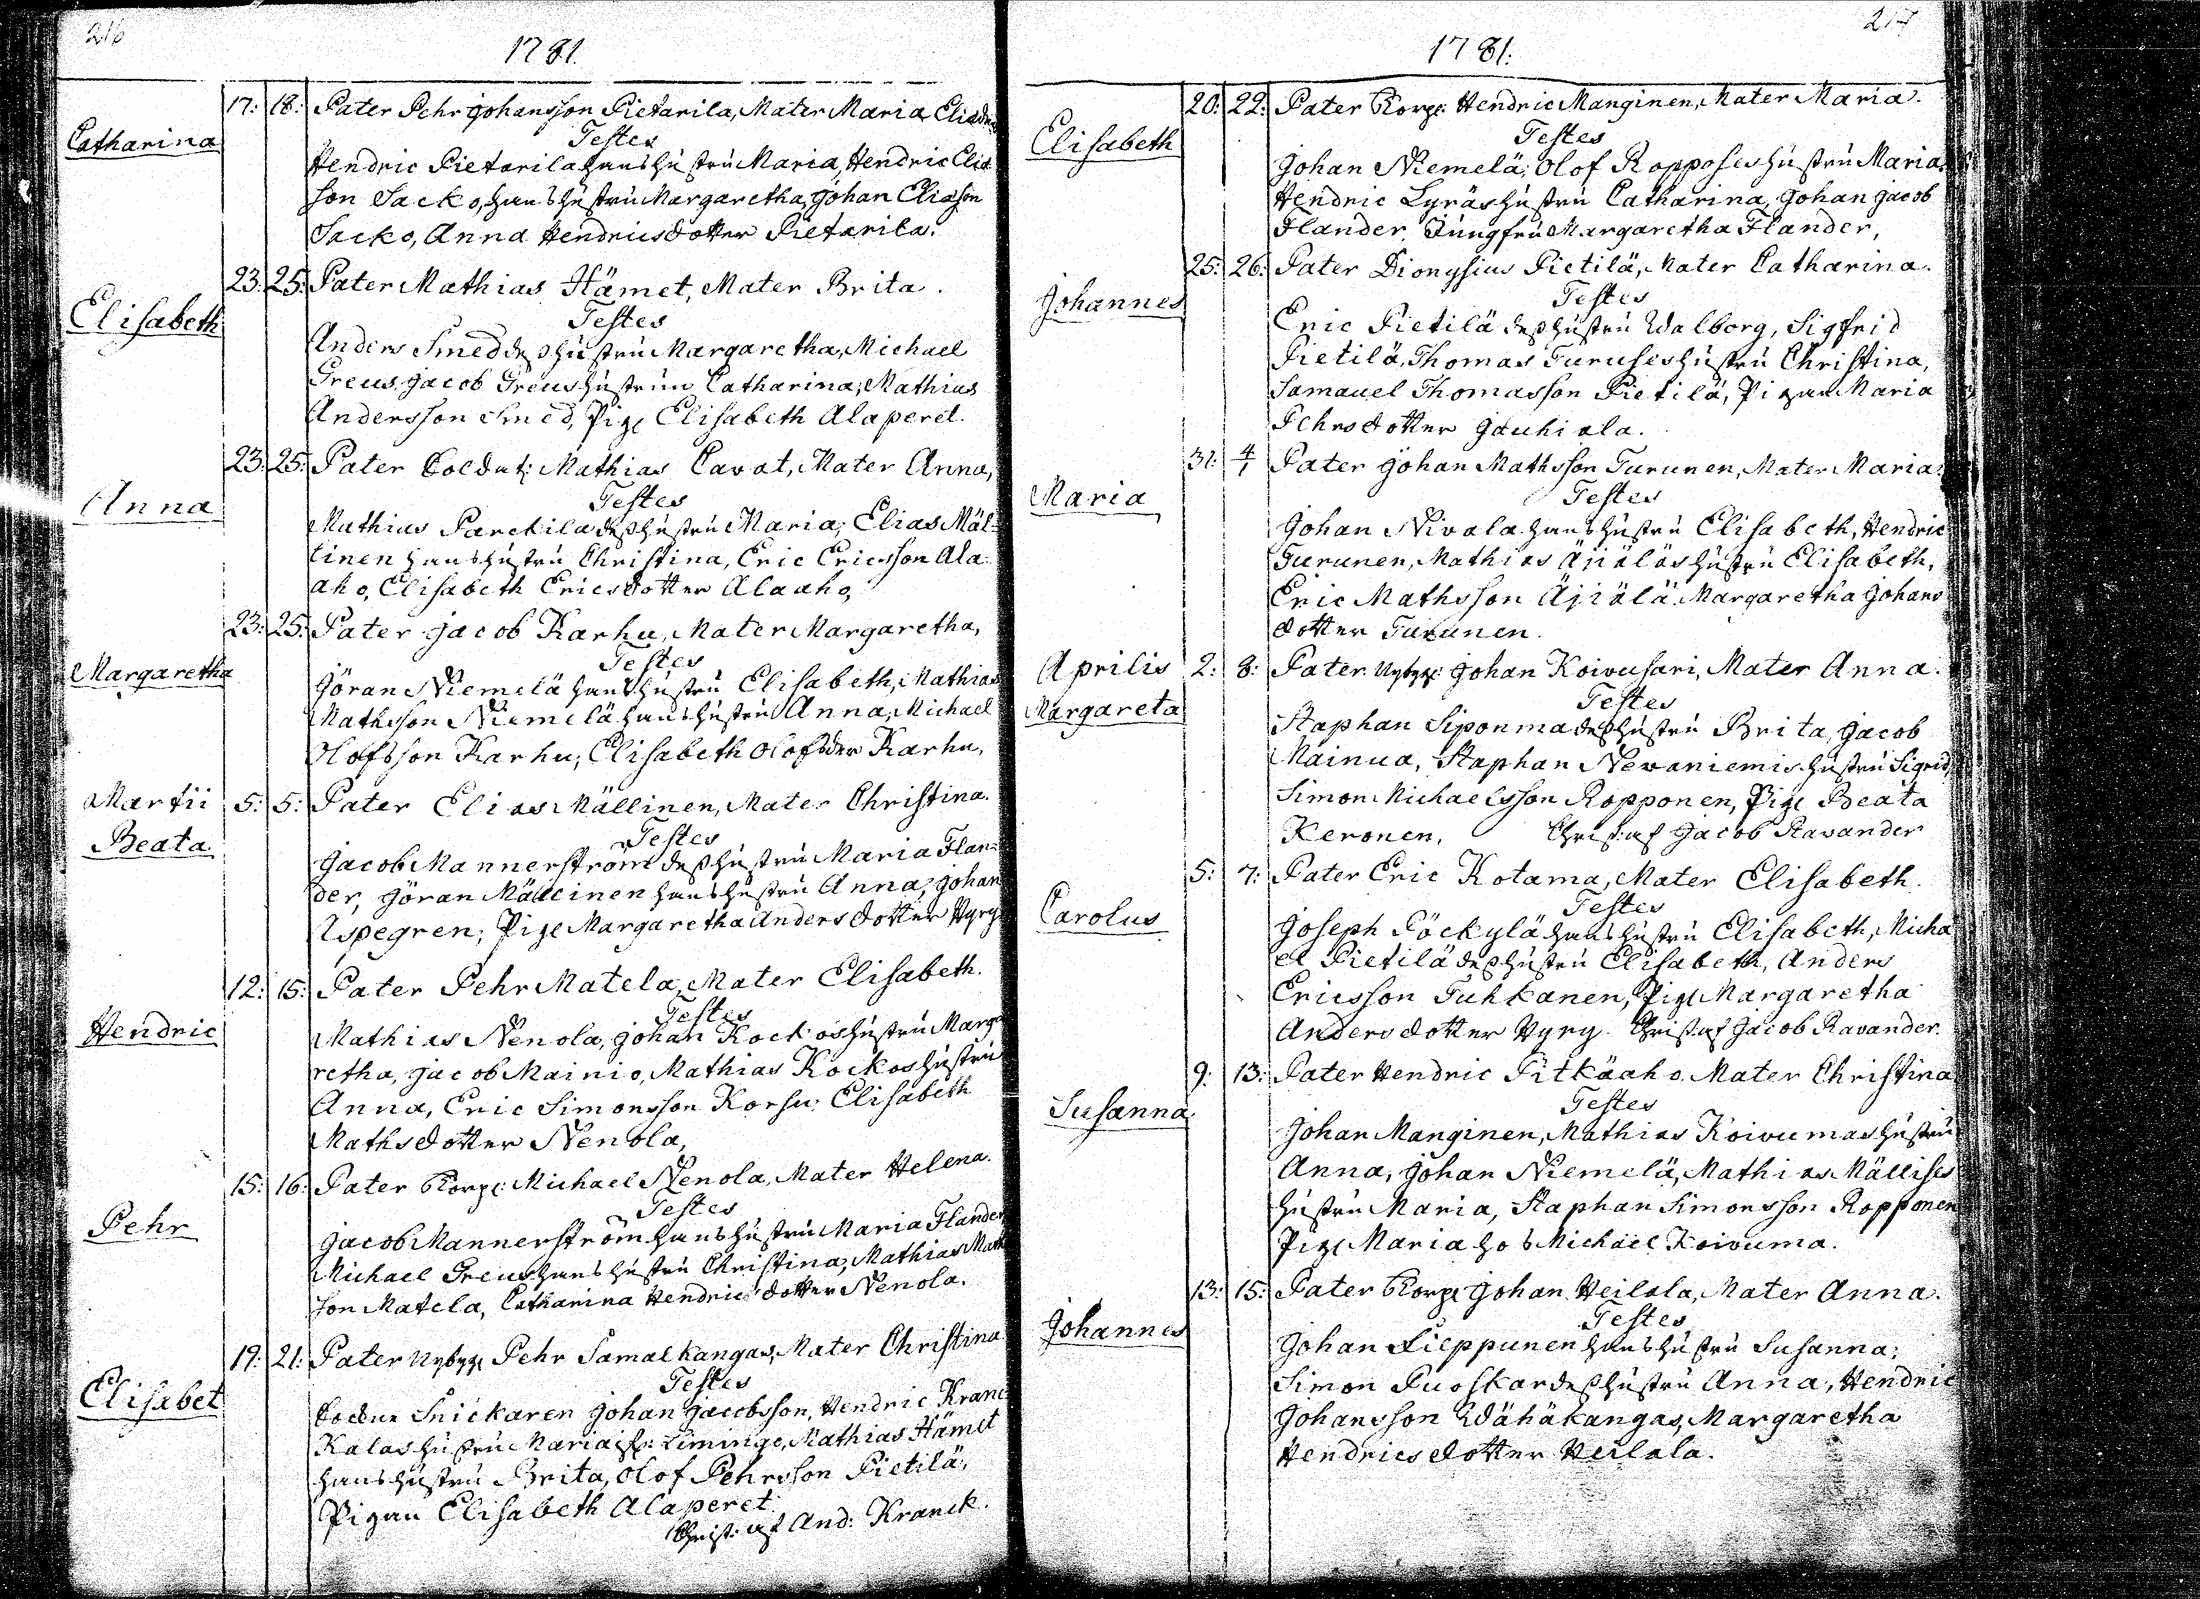 216
1781.
17: 18: Pater Pehr Johansson Pietarila, Mater Maria Eliædr
Catharina
Testes
Hendric Pietarila hans hustru Maria, Hendric Elia
son Sacko, hans hustru Margaretha, Johan Eliæson
Sacko, Anna Hendricsdotter Pietarila.
23: 25: Pater Mathias Hämet, Mater Brita.
Elisabeth
Testes
Anders Smed deß hustru Margaretha, Michael
Greus, Jacob Greus hustru Catharina, Mathias
Andersson Smed, Pig: Elisabeth Alaperet.
23: 25: Pater Soldat: Mathias Cavat, Mater Anna,
Anna
Testes
Mathias Parckila deß hustru Maria, Elias Mäl-
linen hans hustru Christina, Eric Ericsson Ala-
aho, Elisabeth Ericsdotter Alaaho,
23: 25: Pater Jacob Karhu, Mater Margaretha,
Margaretha
Testes
Göran Niemelä hans hustru Elisabeth, Mathias
Mathsson Niemelä hans hustru Anna, Michael
Olofsson Karhu, Elisabeth Olofsder Karhu,
Martii 5: 5: Pater Elias Mällinen, Mater Christina.
Beata
Testes
Jacob Mannerström deß hustru Maria Flan-
der, Göran Mällinen hans hustru Anna, Johan
Aspegren; Pig: Margaretha Andersdotter Vyry
12: 15: Pater Pehr Matela, Mater Elisabeth.
Hendric
Testes
Mathias Nenola, Johan Kockos hustru Marga
retha, Jacob Mainio, Mathias Kockos hustru
Anna, Eric Simonsson Korsu; Elisabeth
Mathsdotter Nenola,
15: 16: Pater Korp: Michael Nenola, Mater Helena.
Pehr
Testes
Jacob Mannerström hans hustru Maria Flander
Michael Greus hans hustru Christina; Mathias Maths
son Matela, Catharina Hendricsdotter Nenola.
19: 21: Pater Nybyg: Pehr Samalkangas, Mater Christina
Elisabet
Testes
Snickaren Johan Jacobsson, Hendric Kranc
Kalas hustru Maria Liminge, Mathias Hämet
hans hustru Brita, Olof Pehrsson Pietilä,
Pigan Elisabeth Alaperet
Christ: af And: Kranck.
217
1781:
20: 22: Pater Korp: Hendric Manginen, Mater Maria.
Elisabeth
Testes
Johan Niemelä, Olof Ropposes hustru Maria,
Hendric Lyräs hustru Catharina, Johan Jacob
Flander, Jungfru Margaretha Flander,
25: 26: Pater Dionysius Pietilä, Mater Catharina.
Johannes
Testes
Eric Pietilä deß hustru Walborg, Sigfrid
Pietilä, Thomas Turuses hustru Christina,
Samauel Thomasson Pietilä, Pigan Maria
Pehrsdotter Jauhiala.
31: 4/1 Pater Johan Mathsson Turunen, Mater Maria.
Maria
Testes
Johan Nivala hans hustru Elisabeth, Hendric
Turunen, Mathias Äjäläs hustru Elisabeth,
Eric Mathsson Äjälä, Margaretha Johans
dotter Turunen.
Aprilis 2: 8: Pater Nybyg: Johan Koivusari, Mater Anna.
Margareta
Testes
Staphan Siponma deß hustru Brita, Jacob
Mainua, Staphan Nevaniemis hustru Sigrid,
Simon Michaelsson Ropponen, Pig: Beata
Keronen, Christ: af Jacob Ravander
5: 7: Pater Eric Kotama, Mater Elisabeth.
Carolus
Testes
Joseph Pöckylä hans hustru Elisabeth, Micha
el Pietilä deß hustru Elisabeth, Anders
Ericsson Tuhkanen, Pig: Margaretha
Andersdotter Vyry. Christ: af Jacob Ravander.
9: 13: Pater Hendric Pitkäaho, Mater Christina
Susanna
Testes
Johan Manginen, Mathias Koivumas hustru
Anna, Johan Niemelä, Mathias Mällises
hustru Maria, Staphan Simonsson Ropponen
Pig: Maria hos Michael Koivuma.
13: 15: Pater Korp: Johan Heilala, Mater Anna.
Johannes
Testes
Johan Lieppunen hans hustru Susanna,
Simon Puoskar deß hustru Anna, Hendric
Johansson Wähäkangas, Margaretha
Hendricsdotter Heilala.